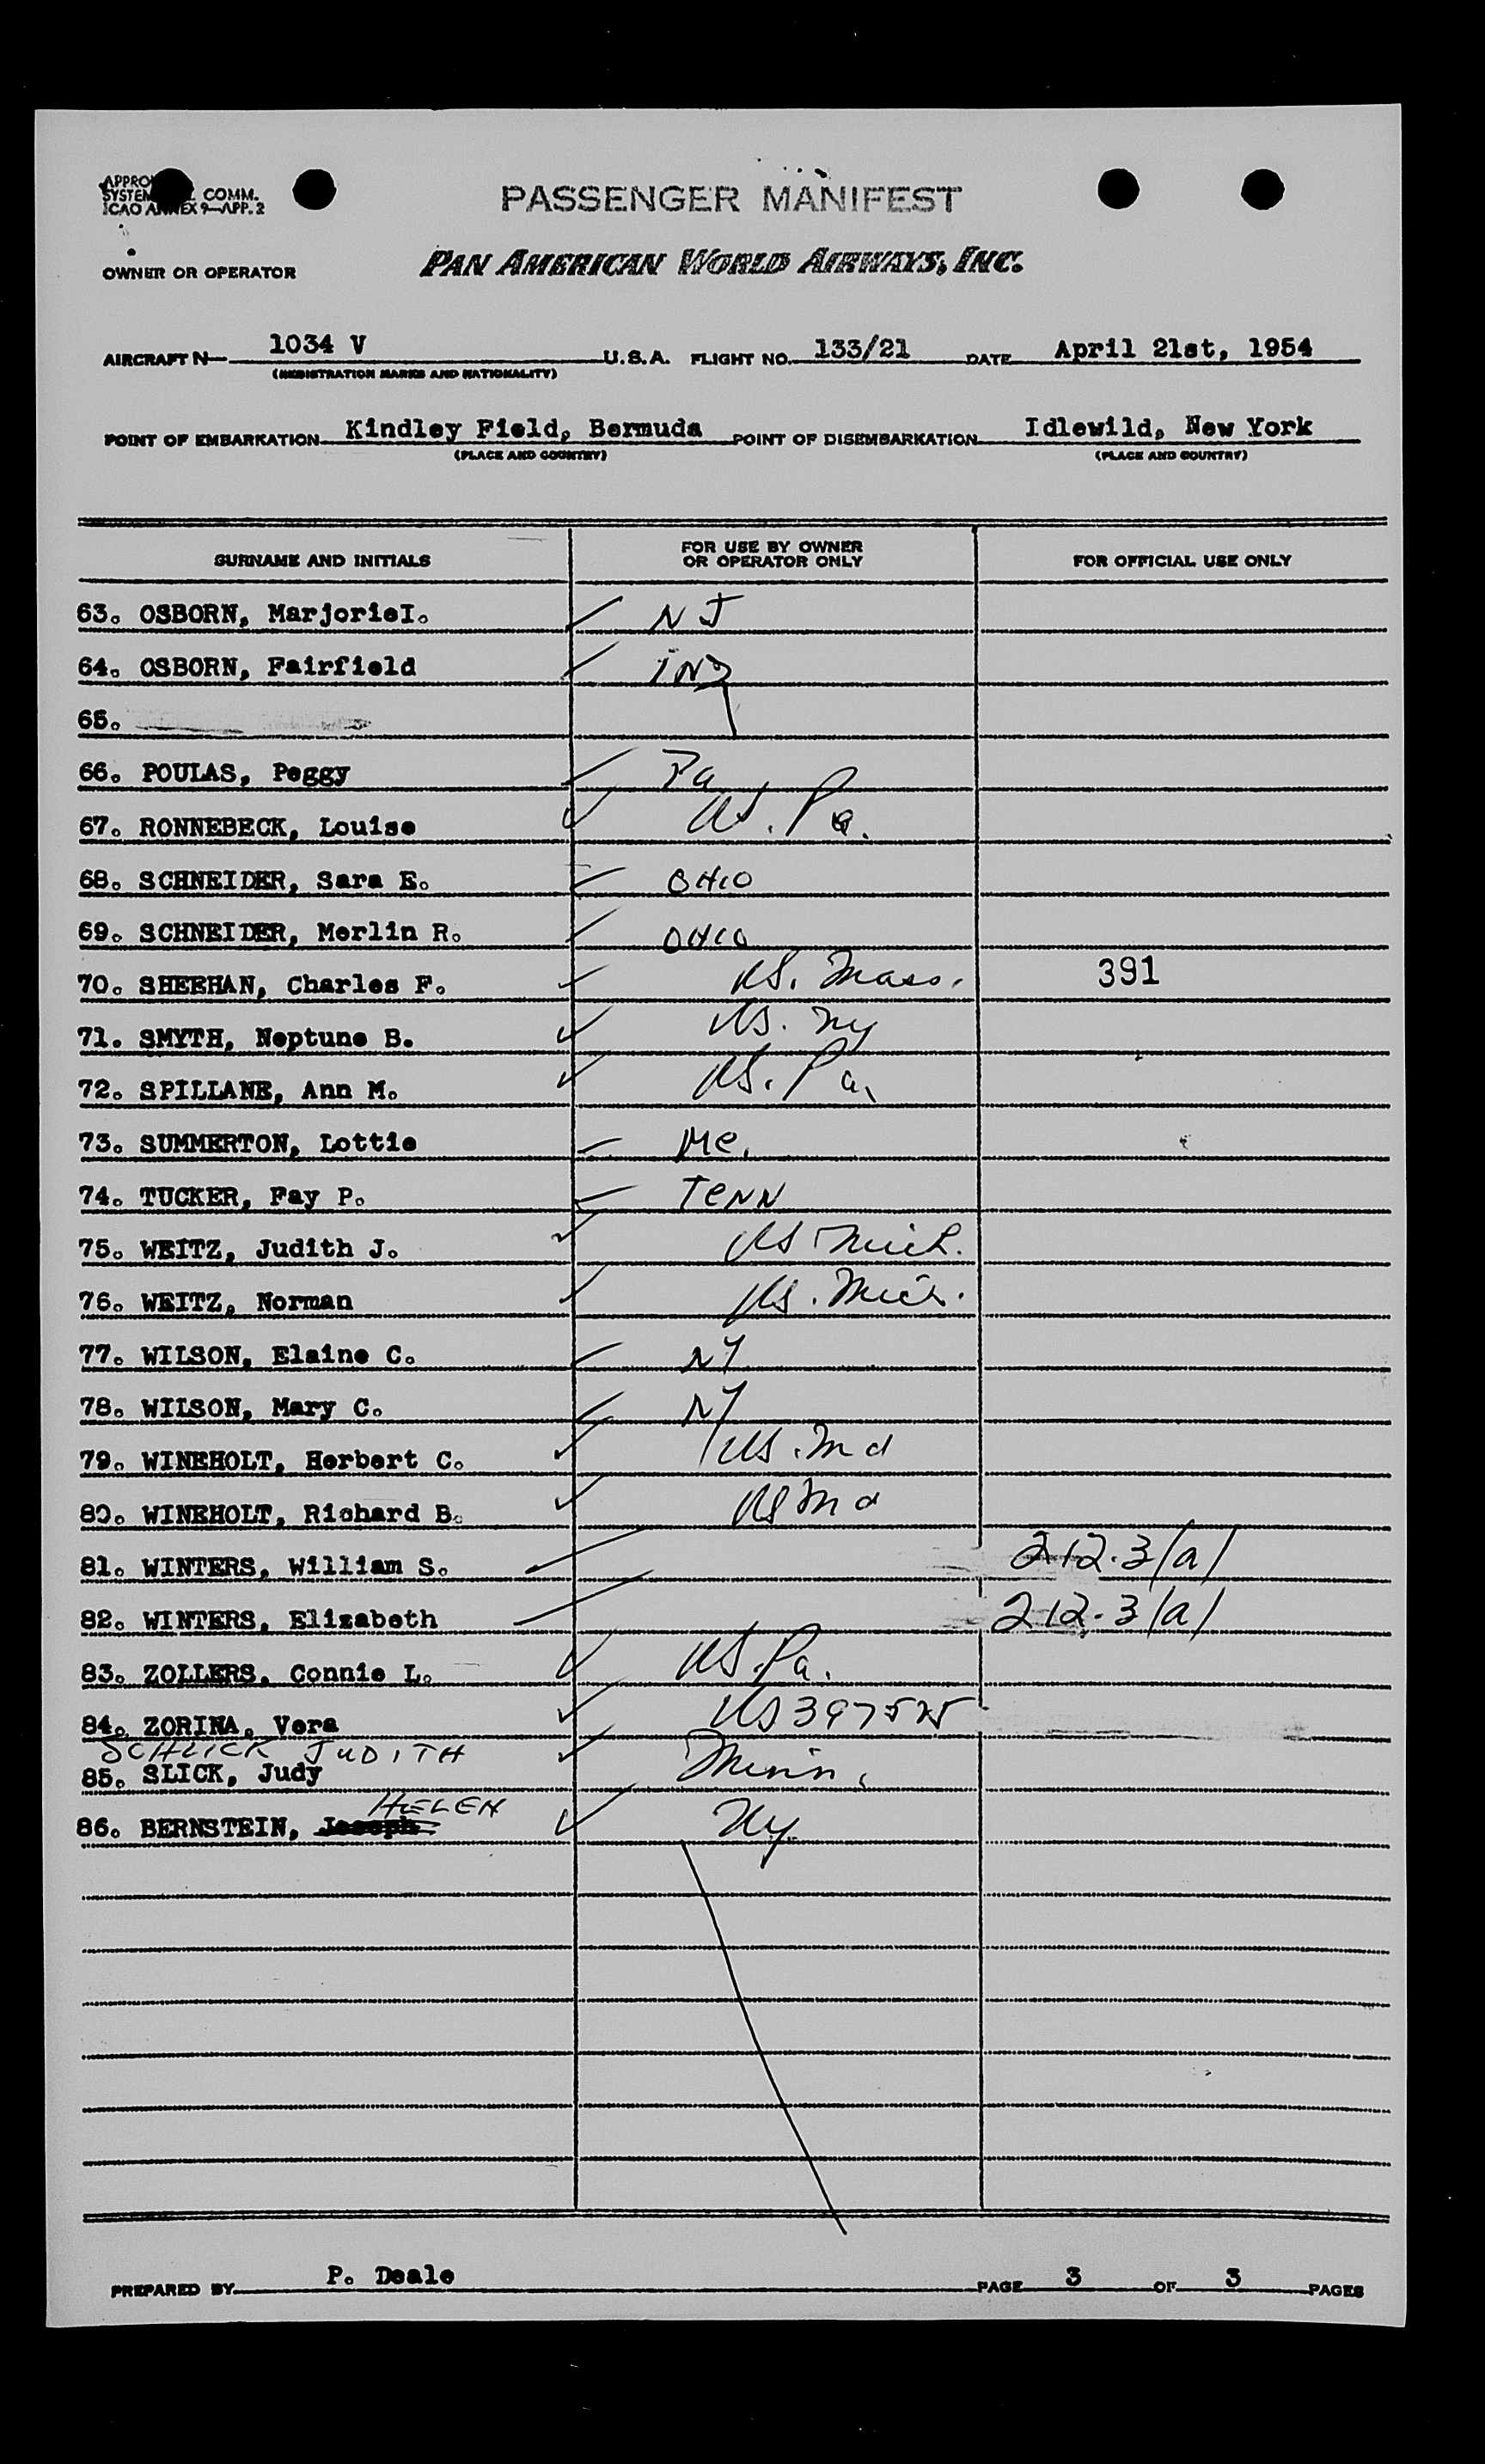 PASSENGER MANIFEST
COMM.
ICAO ANNEX 9—APP. 2
OWNER OR OPERATOR PAN AMERICAN WORLD AIRWAYS, INC.
AIRCRAFT N— 1034 V U.S.A. FLIGHT NO. 133/21 DATE April 21st, 1954
(REGISTRATION MARKS AND NATIONALITY)
POINT OF EMBARKATION Kindley Field, Bermuda POINT OF DISEMBARKATION Idlewild, New York
(PLACE AND COUNTRY) (PLACE AND COUNTRY)
SURNAME AND INITIALS FOR USE BY OWNER OR OPERATOR ONLY FOR OFFICIAL USE ONLY
63. OSBORN, MarjorieI. ✓ NJ
64. OSBORN, Fairfield ✓ IND
65.
66. POULAS, Peggy ✓ Pa
67. RONNEBECK, Louise ✓ US. Pa.
68. SCHNEIDER, Sara E. ✓ OHIO
69. SCHNEIDER, Merlin R. ✓ OHIO
70. SHEEHAN, Charles F. ✓ US. Mass. 391
71. SMYTH, Neptune B. ✓ US. Ny
72. SPILLANE, Ann M. ✓ US. Pa.
73. SUMMERTON, Lottie ✓ Me.
74. TUCKER, Fay P. ✓ TENN
75. WEITZ, Judith J. ✓ US Mich.
76. WEITZ, Norman ✓ US. Mich.
77. WILSON, Elaine C. ✓ NY
78. WILSON, Mary C. ✓ NY
79. WINEHOLT, Herbert C. ✓ US. Md
80. WINEHOLT, Richard B. ✓ US Md
81. WINTERS, William S. ✓ 212.3(a)
82. WINTERS, Elizabeth ✓ 212.3(a)
83. ZOLLERS, Connie L. ✓ US. Pa.
84. ZORINA, Vera ✓ US 397525
SCHLICK JUDITH
85. SLICK, Judy ✓ Minn.
HELEN
86. BERNSTEIN, Joseph ✓ Ny.
PREPARED BY P. Deale PAGE 3 OF 3 PAGES